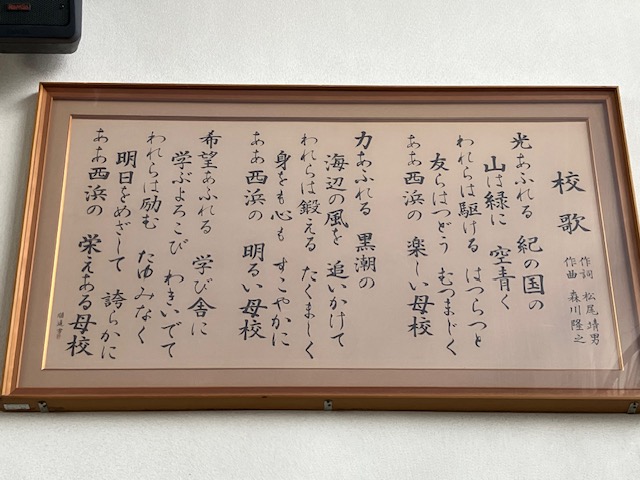 校歌
作詞 松尾靖男
作曲 森川隆之
光あふれる 紀の国の
山は緑に 空青く
われらは駆ける はつらつと
友らはつどう むつまじく
ああ西浜の 楽しい母校
力あふれる 黒潮の
海辺の風を 追いかけて
われらは鍛える たくましく
身をも心も すこやかに
ああ西浜の 明るい母校
希望あふれる 学び舎に
学ぶよろこび わきいでて
われらは励む たゆみなく
明日をめざして 誇らかに
ああ西浜の 栄えある母校